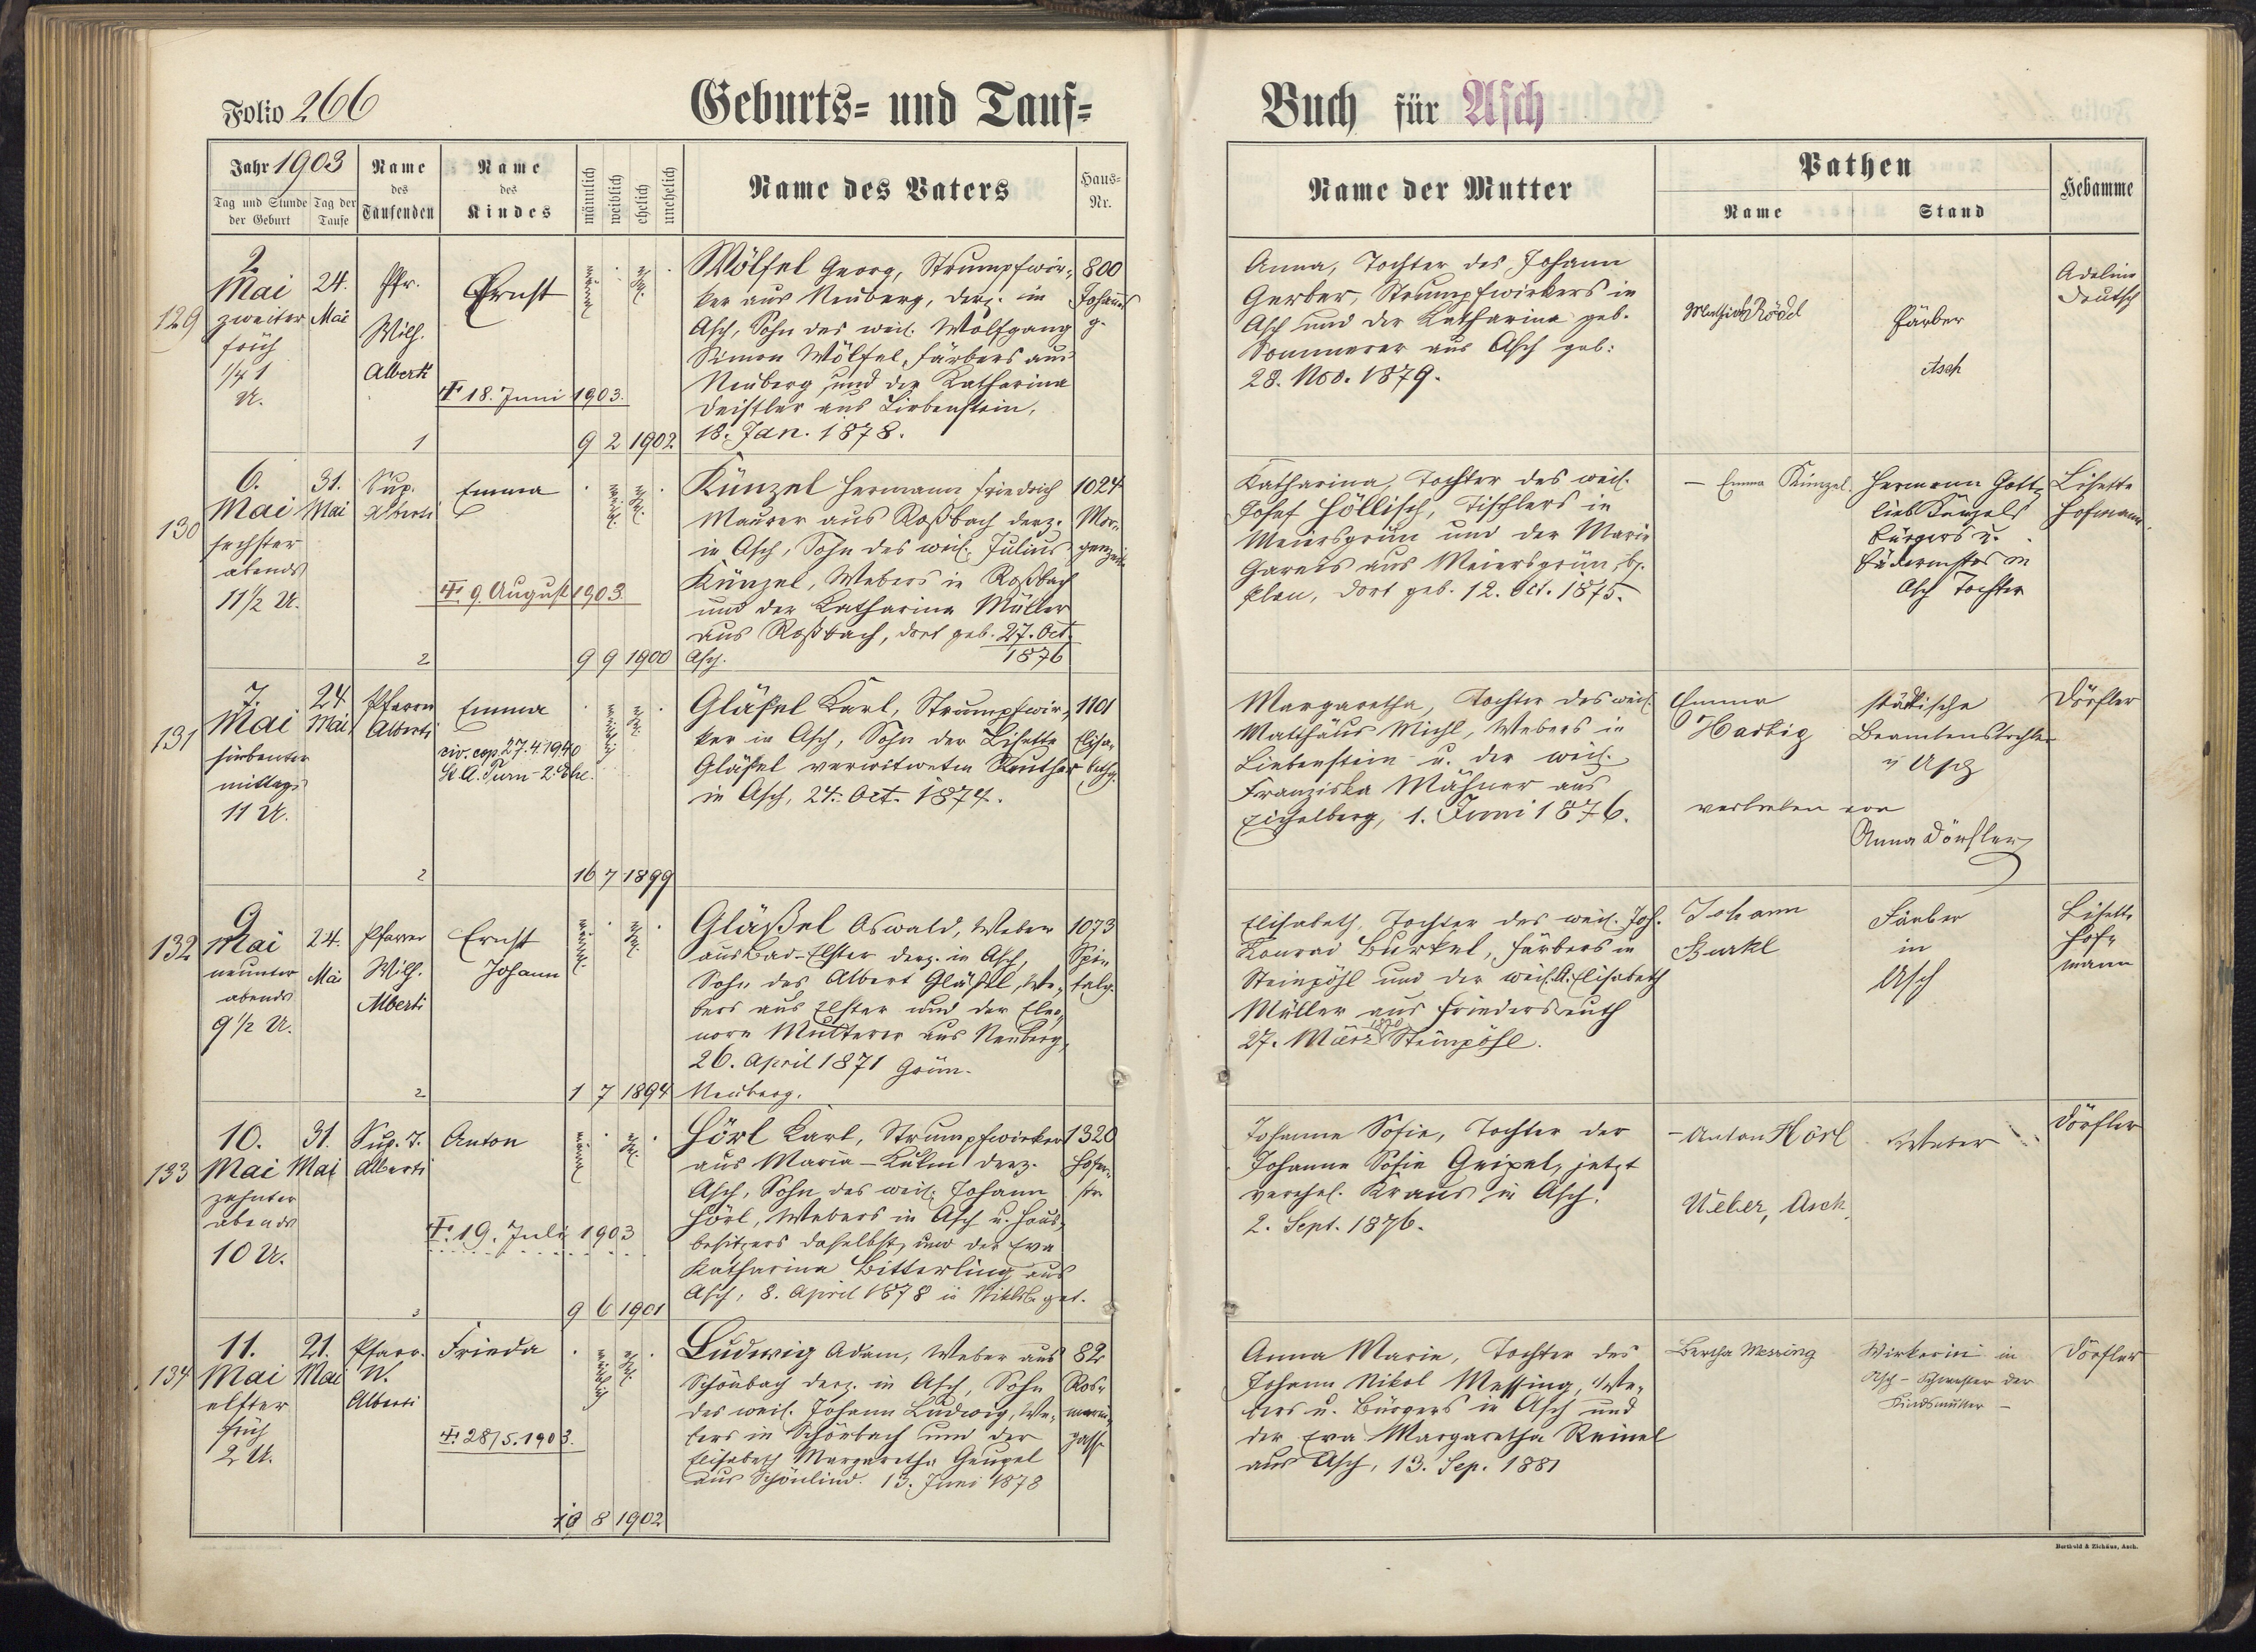 Folio 266
Geburts- und Tauf-
Buch für Asch
Jahr 1903
Tag und Stunde der Geburt
Tag der Taufe
Name des Taufenden
Name des Kindes
männlich
weiblich
ehelich
unehelich
Name des Vaters
Haus-Nr.
Name der Mutter
Pathen
Name
Stand
Hebamme
129
2.
Mai
zweiter
früh
1/4 1
U.
24.
Mai
Pfr.
Wilh.
Alberti
1
Ernst
∓ 18. Juni 1903.
männl.
ehel.
9 2 1902
Wölfel Georg, Strumpfwir-
ker aus Neuberg, derz. in
Asch, Sohn des weil. Wolfgang
Simon Wölfel, Färbers aus
Neuberg und der Katharina
Deistler aus Liebenstein,
18. Jan. 1878.
800
Johannes
g.
Anna, Tochter des Johann
Gerber, Strumpfwirkers in
Asch und der Katharina geb.
Sommerer aus Asch geb:
28. Nov. 1879.
Rödel
Färber
Asch
Adeline
Deutsch
130
6.
Mai
sechster
abends
11 1/2 U.
31.
Mai
Sup.
Alberti
2
Emma
∓ 9. August 1903.
weibl.
ehel.
9 9 1900
Künzel Hermann Friedrich
Maurer aus Roßbach derz.
in Asch, Sohn des weil. Julius
Künzel, Webers in Roßbach
und der Katharina Müller
aus Roßbach, dort geb. 27. Oct.
Asch. 1876
1024
Mor-
genzeile
Katharina, Tochter des weil.
Josef Höllisch, Tischlers in
Meiersgrün und der Marie
aus Meiersgrün, bz.
Plan, dort geb. 12. Oct. 1875.
– Emma Künzel.
Hermann Gott-
lieb Künzels
Bürgers u.
in
Asch Tochter
Lisette
Hofmann.
131
7.
Mai
siebenter
mittags
11 U.
24.
Mai
Pfarrer
Alberti
2
Emma
civ. cop. 27.4.1940
St. A. Turn - 2. Ehe.
weiblich
ehel.
16 7 1899
Gläßel Karl, Strumpfwir-
ker in Asch, Sohn der Lisette
Gläßel verwitweten Reuther
in Asch, 24. Oct. 1874.
1101
Elisa-
bethg.
Margaretha, Tochter des weil.
Matthäus Michl, Webers in
Liebenstein u. der weil.
Franziska Mähner aus
Eichelberg, 1. Juni 1876.
Emma
Hartig
vertreten von
städtische
Beamtenstochter
in Asch
Anna Dörfler
Dörfler
132
9.
Mai
neunter
abends
9 1/2 U.
24.
Mai
Pfarrer
Wilh.
Alberti
2
Ernst
Johann
männl.
ehel.
1 7 1894
Gläßel Oswald, Weber
aus Bad-Elster derz. in Asch,
Sohn des Albert Gläßel, We-
bers aus Elster und der Eleo-
nore Mutterer aus Neuberg,
26. April 1871 Grün.
Neuberg.
1073
Spi-
talg.
Elisabeth, Tochter des weil. Joh.
Konrad Burkel, Färbers in
Steinpöhl und der weil. A. Elisabeth
Müller aus Friedersreuth
27. März 1870 Steinpöhl.
Johann
Burkl
Färber
in
Asch
Lisette
Hof-
mann
133
10.
Mai
zehnter
abends
10 U.
31.
Mai
Sup. T.
Alberti
3
Anton
∓ 19. Juli 1903
männl.
ehel.
9 6 1901
Hörl Karl, Strumpfwirker
aus Maria-Kulm derz.
Asch, Sohn des weil. Johann
Hörl, Webers in Asch u. Haus-
besitzers daselbst, und der Eva
Katharina Bitterling aus
Asch, 8. April 1878 in Niklb. get.
1320
Hofer-
str.
Johanne Sofie, Tochter der
Johanne Sofie Geipel, jetzt
verehel. Kraus in Asch.
2. Sept. 1876.
– Anton Hörl
Weber, Asch.
Weber
Dörfler
134
11.
Mai
elfter
früh
2 U.
21.
Mai
Pfarr.
W.
Alberti
Frieda
∓ 28/5.1903.
weiblich
ehel.
10 8 1902
Ludwig Adam, Weber aus
Schönbach derz. in Asch, Sohn
des weil. Johann Ludwig, We-
bers in Schönbach und der
Elisabeth Margaretha Geupel
aus Schönlind. 13. Juni 1878
82
Ros-
marin-
gasse
Anna Marie, Tochter des
Johann Nikol Messing, We-
bers u. Bürgers in Asch und
der Eva Margaretha Reinel
aus Asch, 13. Sep. 1881
Bertha Messing
Wirkerin in
Asch – Schwester der
Kindsmutter –
Dörfler
Berthold & Zichäus, Asch.